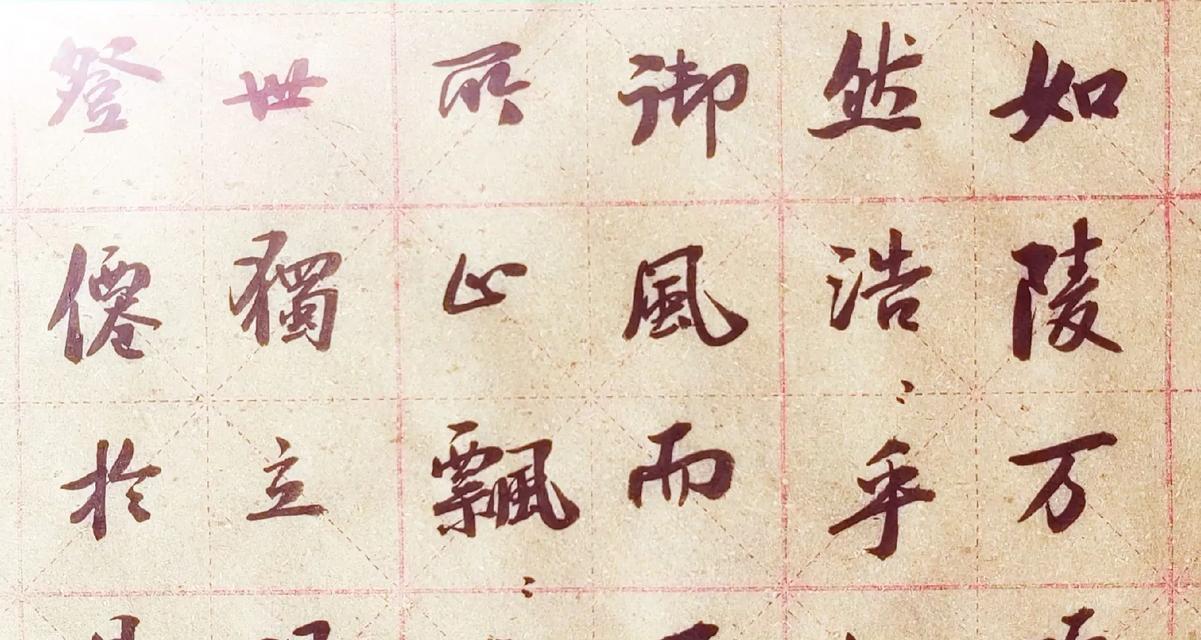 如陵万
然浩〻乎
御風而
所止飄〻
世獨立
登僊於